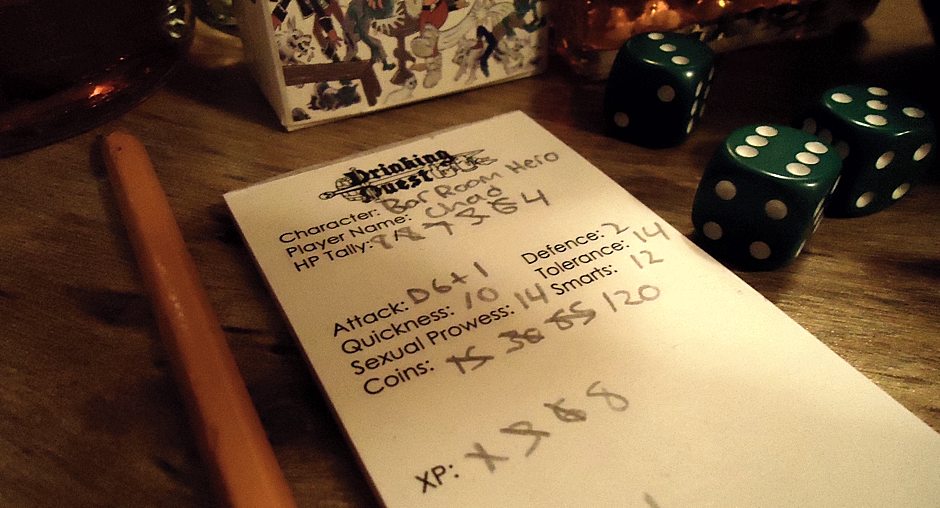 Drinking Quest
Character: Bar Room Hero
Player Name: Chad
HP Tally: 4
Attack: D6+1
Defence: 2
Quickness: 10
Tolerance: 14
Sexual Prowess: 14
Smarts: 12
Coins: 15 30 85 120
XP: 8